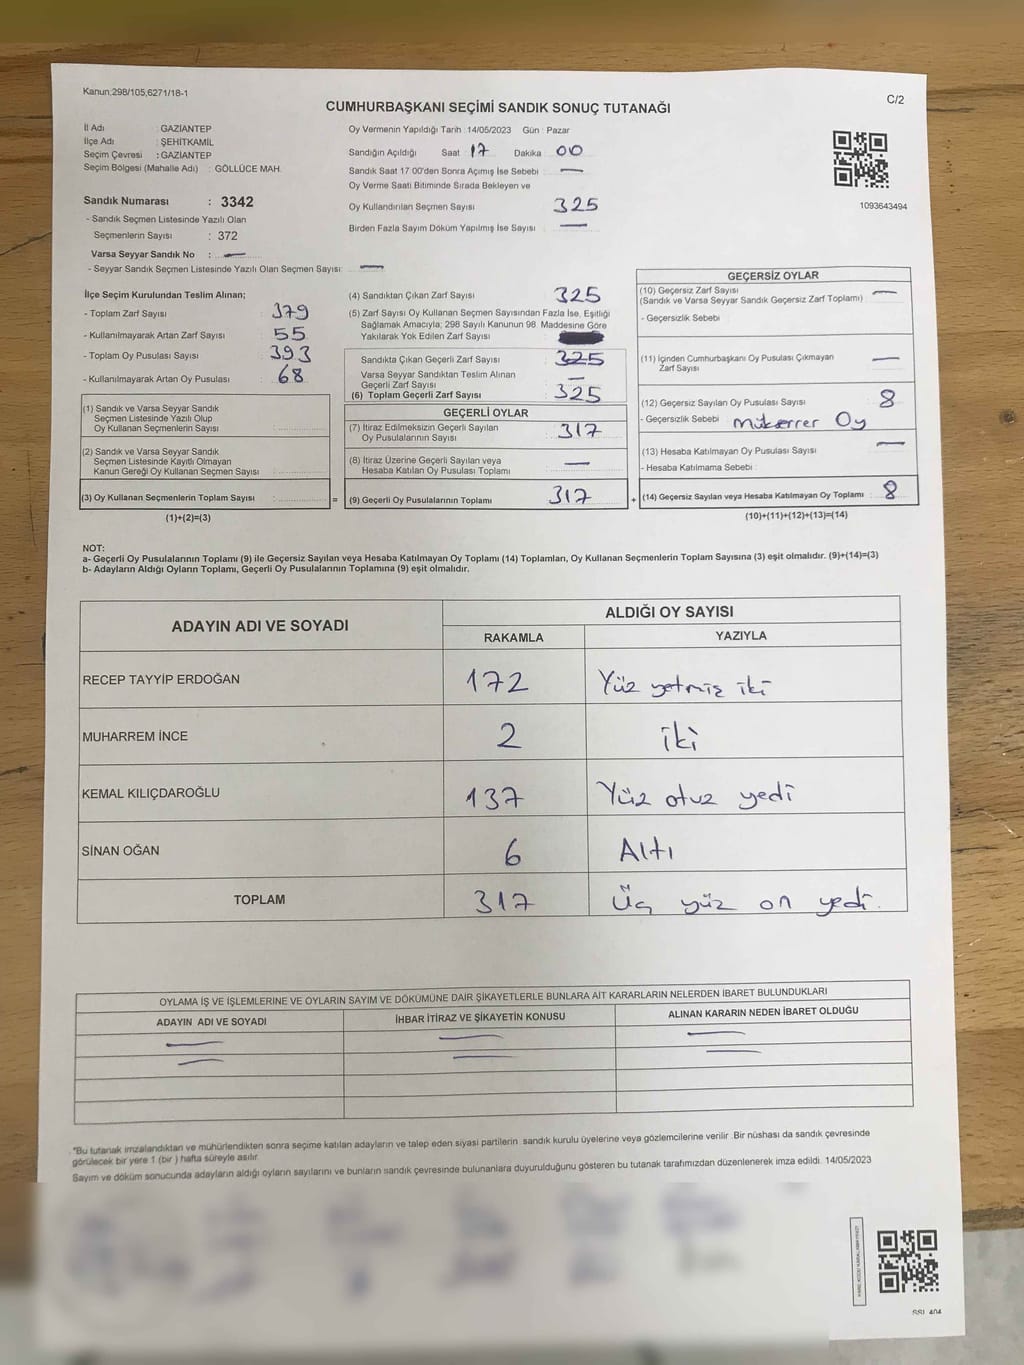 Kanun;298/105,6271/18-1
C/2
CUMHURBAŞKANI SEÇİMİ SANDIK SONUÇ TUTANAĞI
İl Adı : GAZİANTEP
İlçe Adı : ŞEHİTKAMİL
Seçim Çevresi : GAZİANTEP
Seçim Bölgesi (Mahalle Adı) : GÖLLÜCE MAH.
Sandık Numarası : 3342
- Sandık Seçmen Listesinde Yazılı Olan
Seçmenlerin Sayısı : 372
Varsa Seyyar Sandık No : —
- Seyyar Sandık Seçmen Listesinde Yazılı Olan Seçmen Sayısı: —
Oy Vermenin Yapıldığı Tarih : 14/05/2023 Gün : Pazar
Sandığın Açıldığı Saat : 17 Dakika : 00
Sandık Saat 17:00'den Sonra Açımış İse Sebebi : —
Oy Verme Saati Bitiminde Sırada Bekleyen ve
Oy Kullandırılan Seçmen Sayısı : 325
Birden Fazla Sayım Döküm Yapılmış İse Sayısı : —
1093643494
İlçe Seçim Kurulundan Teslim Alınan;
- Toplam Zarf Sayısı : 379
- Kullanılmayarak Artan Zarf Sayısı : 55
- Toplam Oy Pusulası Sayısı : 393
- Kullanılmayarak Artan Oy Pusulası : 68
(1) Sandık ve Varsa Seyyar Sandık
Seçmen Listesinde Yazılı Olup
Oy Kullanan Seçmenlerin Sayısı :
(2) Sandık ve Varsa Seyyar Sandık
Seçmen Listesinde Kayıtlı Olmayan
Kanun Gereği Oy Kullanan Seçmen Sayısı :
(3) Oy Kullanan Seçmenlerin Toplam Sayısı : =
(1)+(2)=(3)
(4) Sandıktan Çıkan Zarf Sayısı : 325
(5) Zarf Sayısı Oy Kullanan Seçmen Sayısından Fazla İse, Eşitliği
Sağlamak Amacıyla; 298 Sayılı Kanunun 98. Maddesine Göre
Yakılarak Yok Edilen Zarf Sayısı :
Sandıkta Çıkan Geçerli Zarf Sayısı : 325
Varsa Seyyar Sandıktan Teslim Alınan
Geçerli Zarf Sayısı : —
(6) Toplam Geçerli Zarf Sayısı : 325
GEÇERLİ OYLAR
(7) İtiraz Edilmeksizin Geçerli Sayılan
Oy Pusulalarının Sayısı : 317
(8) İtiraz Üzerine Geçerli Sayılan veya
Hesaba Katılan Oy Pusulası Toplamı : —
(9) Geçerli Oy Pusulalarının Toplamı : 317 +
GEÇERSİZ OYLAR
(10) Geçersiz Zarf Sayısı : —
(Sandık ve Varsa Seyyar Sandık Geçersiz Zarf Toplamı)
- Geçersizlik Sebebi :
(11) İçinden Cumhurbaşkanı Oy Pusulası Çıkmayan
Zarf Sayısı : —
(12) Geçersiz Sayılan Oy Pusulası Sayısı : 8
- Geçersizlik Sebebi : Mükerrer Oy
(13) Hesaba Katılmayan Oy Pusulası Sayısı : —
- Hesaba Katılmama Sebebi :
(14) Geçersiz Sayılan veya Hesaba Katılmayan Oy Toplamı : 8
(10)+(11)+(12)+(13)=(14)
NOT:
a- Geçerli Oy Pusulalarının Toplamı (9) ile Geçersiz Sayılan veya Hesaba Katılmayan Oy Toplamı (14) Toplamları, Oy Kullanan Seçmenlerin Toplam Sayısına (3) eşit olmalıdır. (9)+(14)=(3)
b- Adayların Aldığı Oyların Toplamı, Geçerli Oy Pusulalarının Toplamına (9) eşit olmalıdır.
ADAYIN ADI VE SOYADI
ALDIĞI OY SAYISI
RAKAMLA YAZIYLA
RECEP TAYYİP ERDOĞAN 172 Yüz yetmiş iki
MUHARREM İNCE 2 iki
KEMAL KILIÇDAROĞLU 137 Yüz otuz yedi
SİNAN OĞAN 6 Altı
TOPLAM 317 Üç yüz on yedi.
OYLAMA İŞ VE İŞLEMLERİNE VE OYLARIN SAYIM VE DÖKÜMÜNE DAİR ŞİKAYETLERLE BUNLARA AİT KARARLARIN NELERDEN İBARET BULUNDUKLARI
ADAYIN ADI VE SOYADI İHBAR İTİRAZ VE ŞİKAYETİN KONUSU ALINAN KARARIN NEDEN İBARET OLDUĞU
*Bu tutanak imzalandıktan ve mühürlendikten sonra seçime katılan adayların ve talep eden siyasi partilerin sandık kurulu üyelerine veya gözlemcilerine verilir .Bir nüshası da sandık çevresinde
görülecek bir yere 1 (bir ) hafta süreyle asılır.
Sayım ve döküm sonucunda adayların aldığı oyların sayılarını ve bunların sandık çevresinde bulunanlara duyurulduğunu gösteren bu tutanak tarafımızdan düzenlenerek imza edildi. 14/05/2023